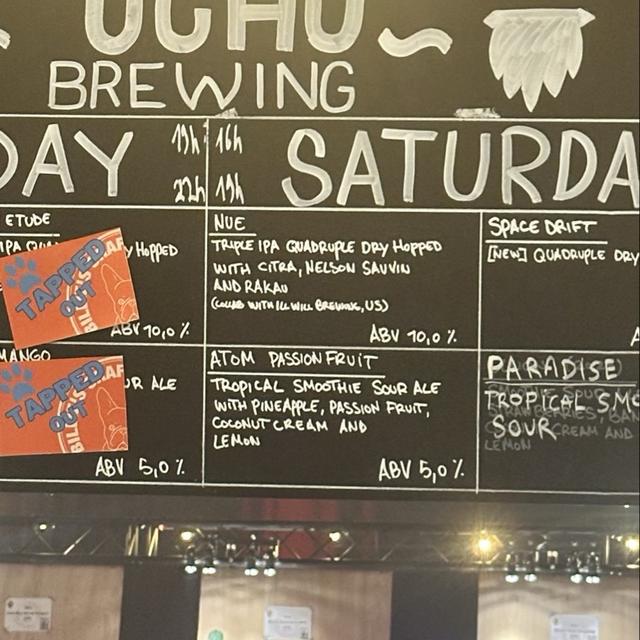 UCHU
BREWING
DAY
19h
22h
16h
19h
SATURDA
ETUDE
IPA QUA
Y HOPPED
ABV 10,0 %
TAPPED
OUT
NUE
TRIPLE IPA QUADRUPLE DRY HOPPED
WITH CITRA, NELSON SAUVIN
AND RAKAU
(COLLAB WITH ILL WILL BREWING, US)
ABV 10,0 %
SPACE DRIFT
[NEW] QUADRUPLE DRY
A
MANGO
UR ALE
TAPPED
OUT
ABV 5,0 %
ATOM PASSION FRUIT
TROPICAL SMOOTHIE SOUR ALE
WITH PINEAPPLE, PASSION FRUIT,
COCONUT CREAM AND
LEMON
ABV 5,0 %
PARADISE
TROPICAL SMO
SOUR
CREAM AND
LEMON